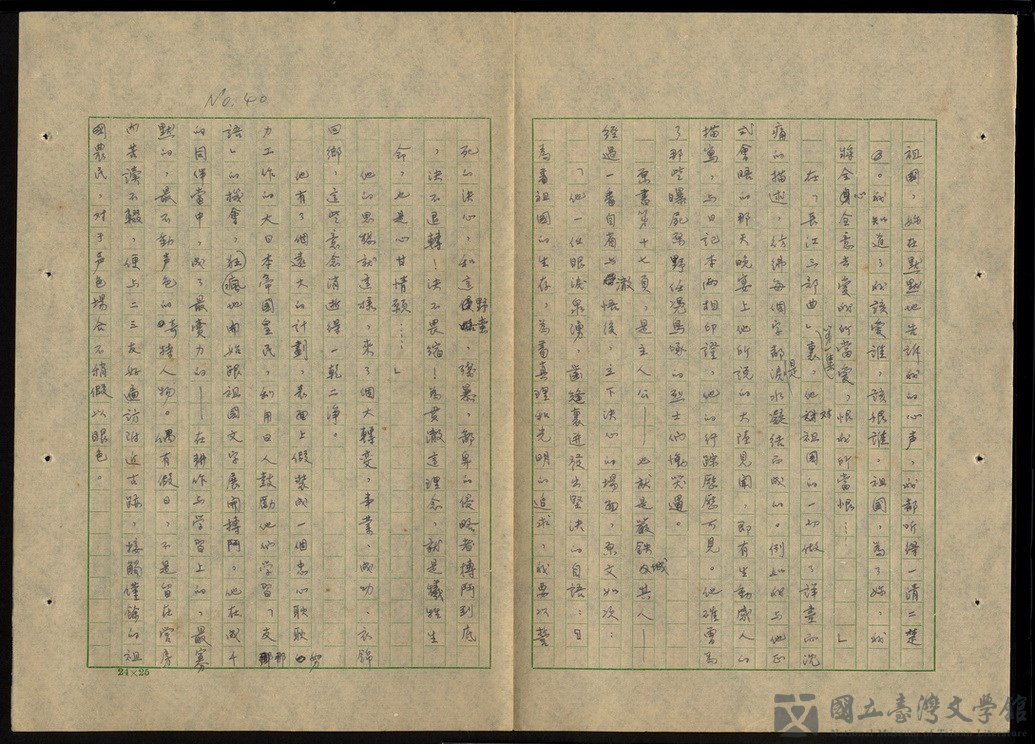 No. 40
祖國，妳在默默地告訴我的心声，我都听得一清二楚
了。我知道了我該愛誰，該恨誰。祖國，為了妳，我
將全心全意去愛我所當愛，恨我所當恨……」
在「長江三部曲」第一集裏，他對祖國的一切做了詳盡而沈
痛的描述，彷彿每個字都是淚水凝結而成的。例如
式會晤的那天晚宴上他所說的大陸見聞，即有生動感人的
描寫，与日記本兩相印證，他的行踪歷歷可見。他確曾為
了那些曝屍荒野任烏鴉啄的烈士們慟哭過。
原書第十七頁，是主人公——也就是嚴鐵城其人
經過一番自省与澈悟後立下決心的場面，原文如次：
「他一任眼淚泉湧，齒縫裏迸發出堅決的自語：曰
為着祖國的生存，為着真理和光明的追求，我要以誓
死的決心，和這野蠻、強暴、卑鄙的侵略者搏鬥到底
，決不退轉！決不畏縮！為貫澈這理念，就是犧牲生
命，也是心甘情願……」
他的思想就這樣，來了個大轉變，事業、成功、衣錦
回鄉，這些意念消逝得一乾二淨。
他有了個遠大的計劃，表面上做裝成一個忠心耿耿、努
力工作的大日本帝國皇民，利用日人鼓勵他們学習「友邦
語」的機會，瘋狂地開始跟祖國文字展開搏鬥。他在成千
的同伴當中，成了最賣力的——在耕作与学習上的，最寡
默的，最不動声色的奇特人物。偶有假日，不是留在営房
內苦讀不輟，便与二三友好遍訪附近古跡，接觸僅餘的祖
國農民，对于声色場合不稍假以眼色。
24×25
國立臺灣文學館
National Museum of Taiwan Literature